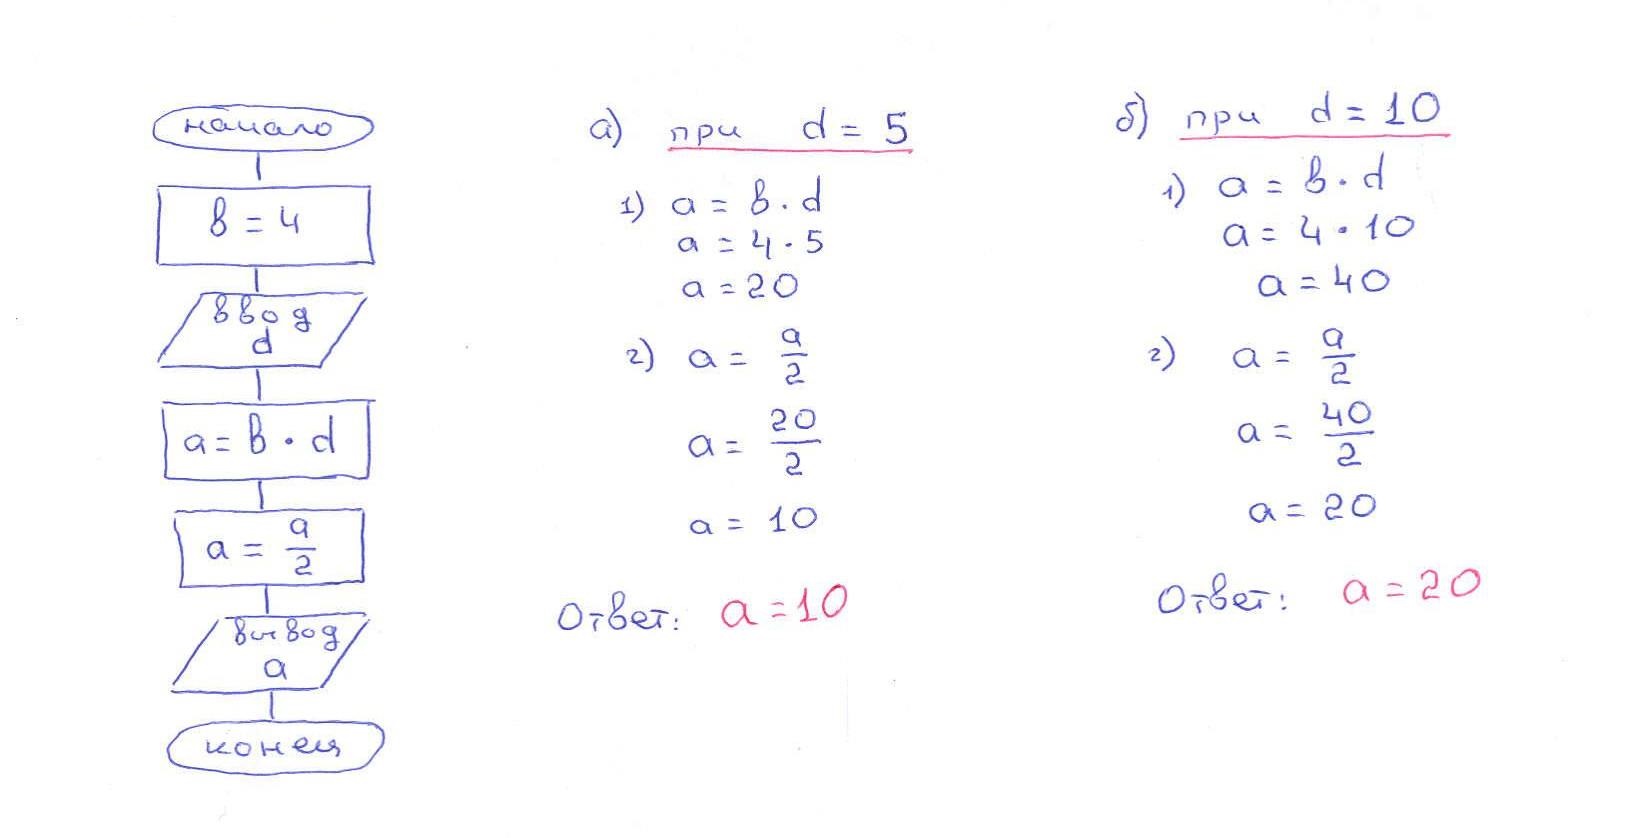 начало
в = 4
ввод
d
a = в · d
a = a/2
вывод
a
конец
а) при d = 5
1) a = в · d
a = 4 · 5
a = 20
2) a = a/2
a = 20/2
a = 10
Ответ: a = 10
б) при d = 10
1) a = в · d
a = 4 · 10
a = 40
2) a = a/2
a = 40/2
a = 20
Ответ: a = 20